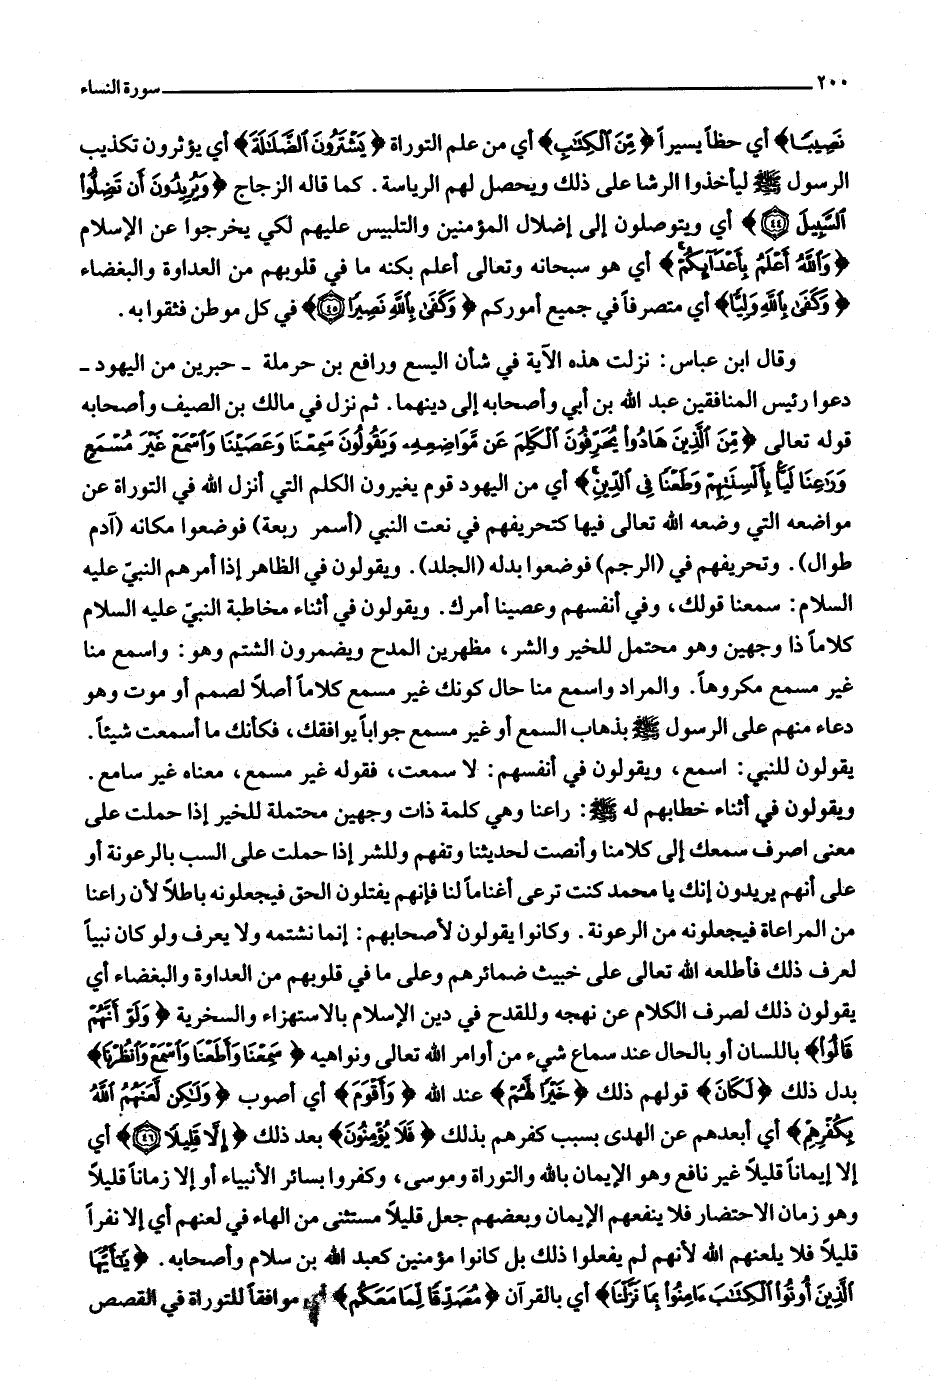 ٢٠٠ سورة النساء
نَصِيبًا﴾ أي حظاً يسيراً ﴿مِّنَ ٱلْكِتَٰبِ﴾ أي من علم التوراة ﴿يَشْتَرُونَ ٱلضَّلَٰلَةَ﴾ أي يؤثرون تكذيب
الرسول ﷺ ليأخذوا الرشا على ذلك ويحصل لهم الرياسة. كما قاله الزجاج ﴿وَيُرِيدُونَ أَن تَضِلُّوا۟
ٱلسَّبِيلَ ٤٤﴾ أي ويتوصلون إلى إضلال المؤمنين والتلبيس عليهم لكي يخرجوا عن الإسلام
﴿وَٱللَّهُ أَعْلَمُ بِأَعْدَآئِكُمْ﴾ أي هو سبحانه وتعالى أعلم بكنه ما في قلوبهم من العداوة والبغضاء
﴿وَكَفَىٰ بِٱللَّهِ وَلِيًّا﴾ أي متصرفاً في جميع أموركم ﴿وَكَفَىٰ بِٱللَّهِ نَصِيرًا ٤٥﴾ في كل موطن فثقوا به.
وقال ابن عباس: نزلت هذه الآية في شأن اليسع ورافع بن حرملة - حبرين من اليهود -
دعوا رئيس المنافقين عبد الله بن أبي وأصحابه إلى دينهما. ثم نزل في مالك بن الصيف وأصحابه
قوله تعالى ﴿مِّنَ ٱلَّذِينَ هَادُوا۟ يُحَرِّفُونَ ٱلْكَلِمَ عَن مَّوَاضِعِهِۦ وَيَقُولُونَ سَمِعْنَا وَعَصَيْنَا وَٱسْمَعْ غَيْرَ مُسْمَعٍ
وَرَٰعِنَا لَيًّۢا بِأَلْسِنَتِهِمْ وَطَعْنًا فِى ٱلدِّينِ﴾ أي من اليهود قوم يغيرون الكلم التي أنزل الله في التوراة عن
مواضعه التي وضعه الله تعالى فيها كتحريفهم في نعت النبي (أسمر ربعة) فوضعوا مكانه (آدم
طوال). وتحريفهم في (الرجم) فوضعوا بدله (الجلد). ويقولون في الظاهر إذا أمرهم النبيّ عليه
السلام: سمعنا قولك، وفي أنفسهم وعصينا أمرك. ويقولون في أثناء مخاطبة النبيّ عليه السلام
كلاماً ذا وجهين وهو محتمل للخير والشر، مظهرين المدح ويضمرون الشتم وهو: واسمع منا
غير مسمع مكروهاً. والمراد واسمع منا حال كونك غير مسمع كلاماً أصلاً لصمم أو موت وهو
دعاء منهم على الرسول ﷺ بذهاب السمع أو غير مسمع جواباً يوافقك، فكأنك ما أسمعت شيئاً.
يقولون للنبي: اسمع، ويقولون في أنفسهم: لا سمعت، فقوله غير مسمع، معناه غير سامع.
ويقولون في أثناء خطابهم له ﷺ: راعنا وهي كلمة ذات وجهين محتملة للخير إذا حملت على
معنى اصرف سمعك إلى كلامنا وأنصت لحديثنا وتفهم وللشر إذا حملت على السب بالرعونة أو
على أنهم يريدون إنك يا محمد كنت ترعى أغناماً لنا فإنهم يفتلون الحق فيجعلونه باطلاً لأن راعنا
من المراعاة فيجعلونه من الرعونة. وكانوا يقولون لأصحابهم: إنما نشتمه ولا يعرف ولو كان نبياً
لعرف ذلك فأطلعه الله تعالى على خبيث ضمائرهم وعلى ما في قلوبهم من العداوة والبغضاء أي
يقولون ذلك لصرف الكلام عن نهجه وللقدح في دين الإسلام بالاستهزاء والسخرية ﴿وَلَوْ أَنَّهُمْ
قَالُوا۟﴾ باللسان أو بالحال عند سماع شيء من أوامر الله تعالى ونواهيه ﴿سَمِعْنَا وَأَطَعْنَا وَٱسْمَعْ وَٱنظُرْنَا﴾
بدل ذلك ﴿لَكَانَ﴾ قولهم ذلك ﴿خَيْرًا لَّهُمْ﴾ عند الله ﴿وَأَقْوَمَ﴾ أي أصوب ﴿وَلَٰكِن لَّعَنَهُمُ ٱللَّهُ
بِكُفْرِهِمْ﴾ أي أبعدهم عن الهدى بسبب كفرهم بذلك ﴿فَلَا يُؤْمِنُونَ﴾ بعد ذلك ﴿إِلَّا قَلِيلًا ٤٦﴾ أي
إلا إيماناً قليلاً غير نافع وهو الإيمان بالله والتوراة وموسى، وكفروا بسائر الأنبياء أو إلا زماناً قليلاً
وهو زمان الاحتضار فلا ينفعهم الإيمان وبعضهم جعل قليلاً مستثنى من الهاء في لعنهم أي إلا نفراً
قليلاً فلا يلعنهم الله لأنهم لم يفعلوا ذلك بل كانوا مؤمنين كعبد الله بن سلام وأصحابه. ﴿يَٰٓأَيُّهَا
ٱلَّذِينَ أُوتُوا۟ ٱلْكِتَٰبَ ءَامِنُوا۟ بِمَا نَزَّلْنَا﴾ أي بالقرآن ﴿مُصَدِّقًا لِّمَا مَعَكُم﴾ أي موافقاً للتوراة في القصص